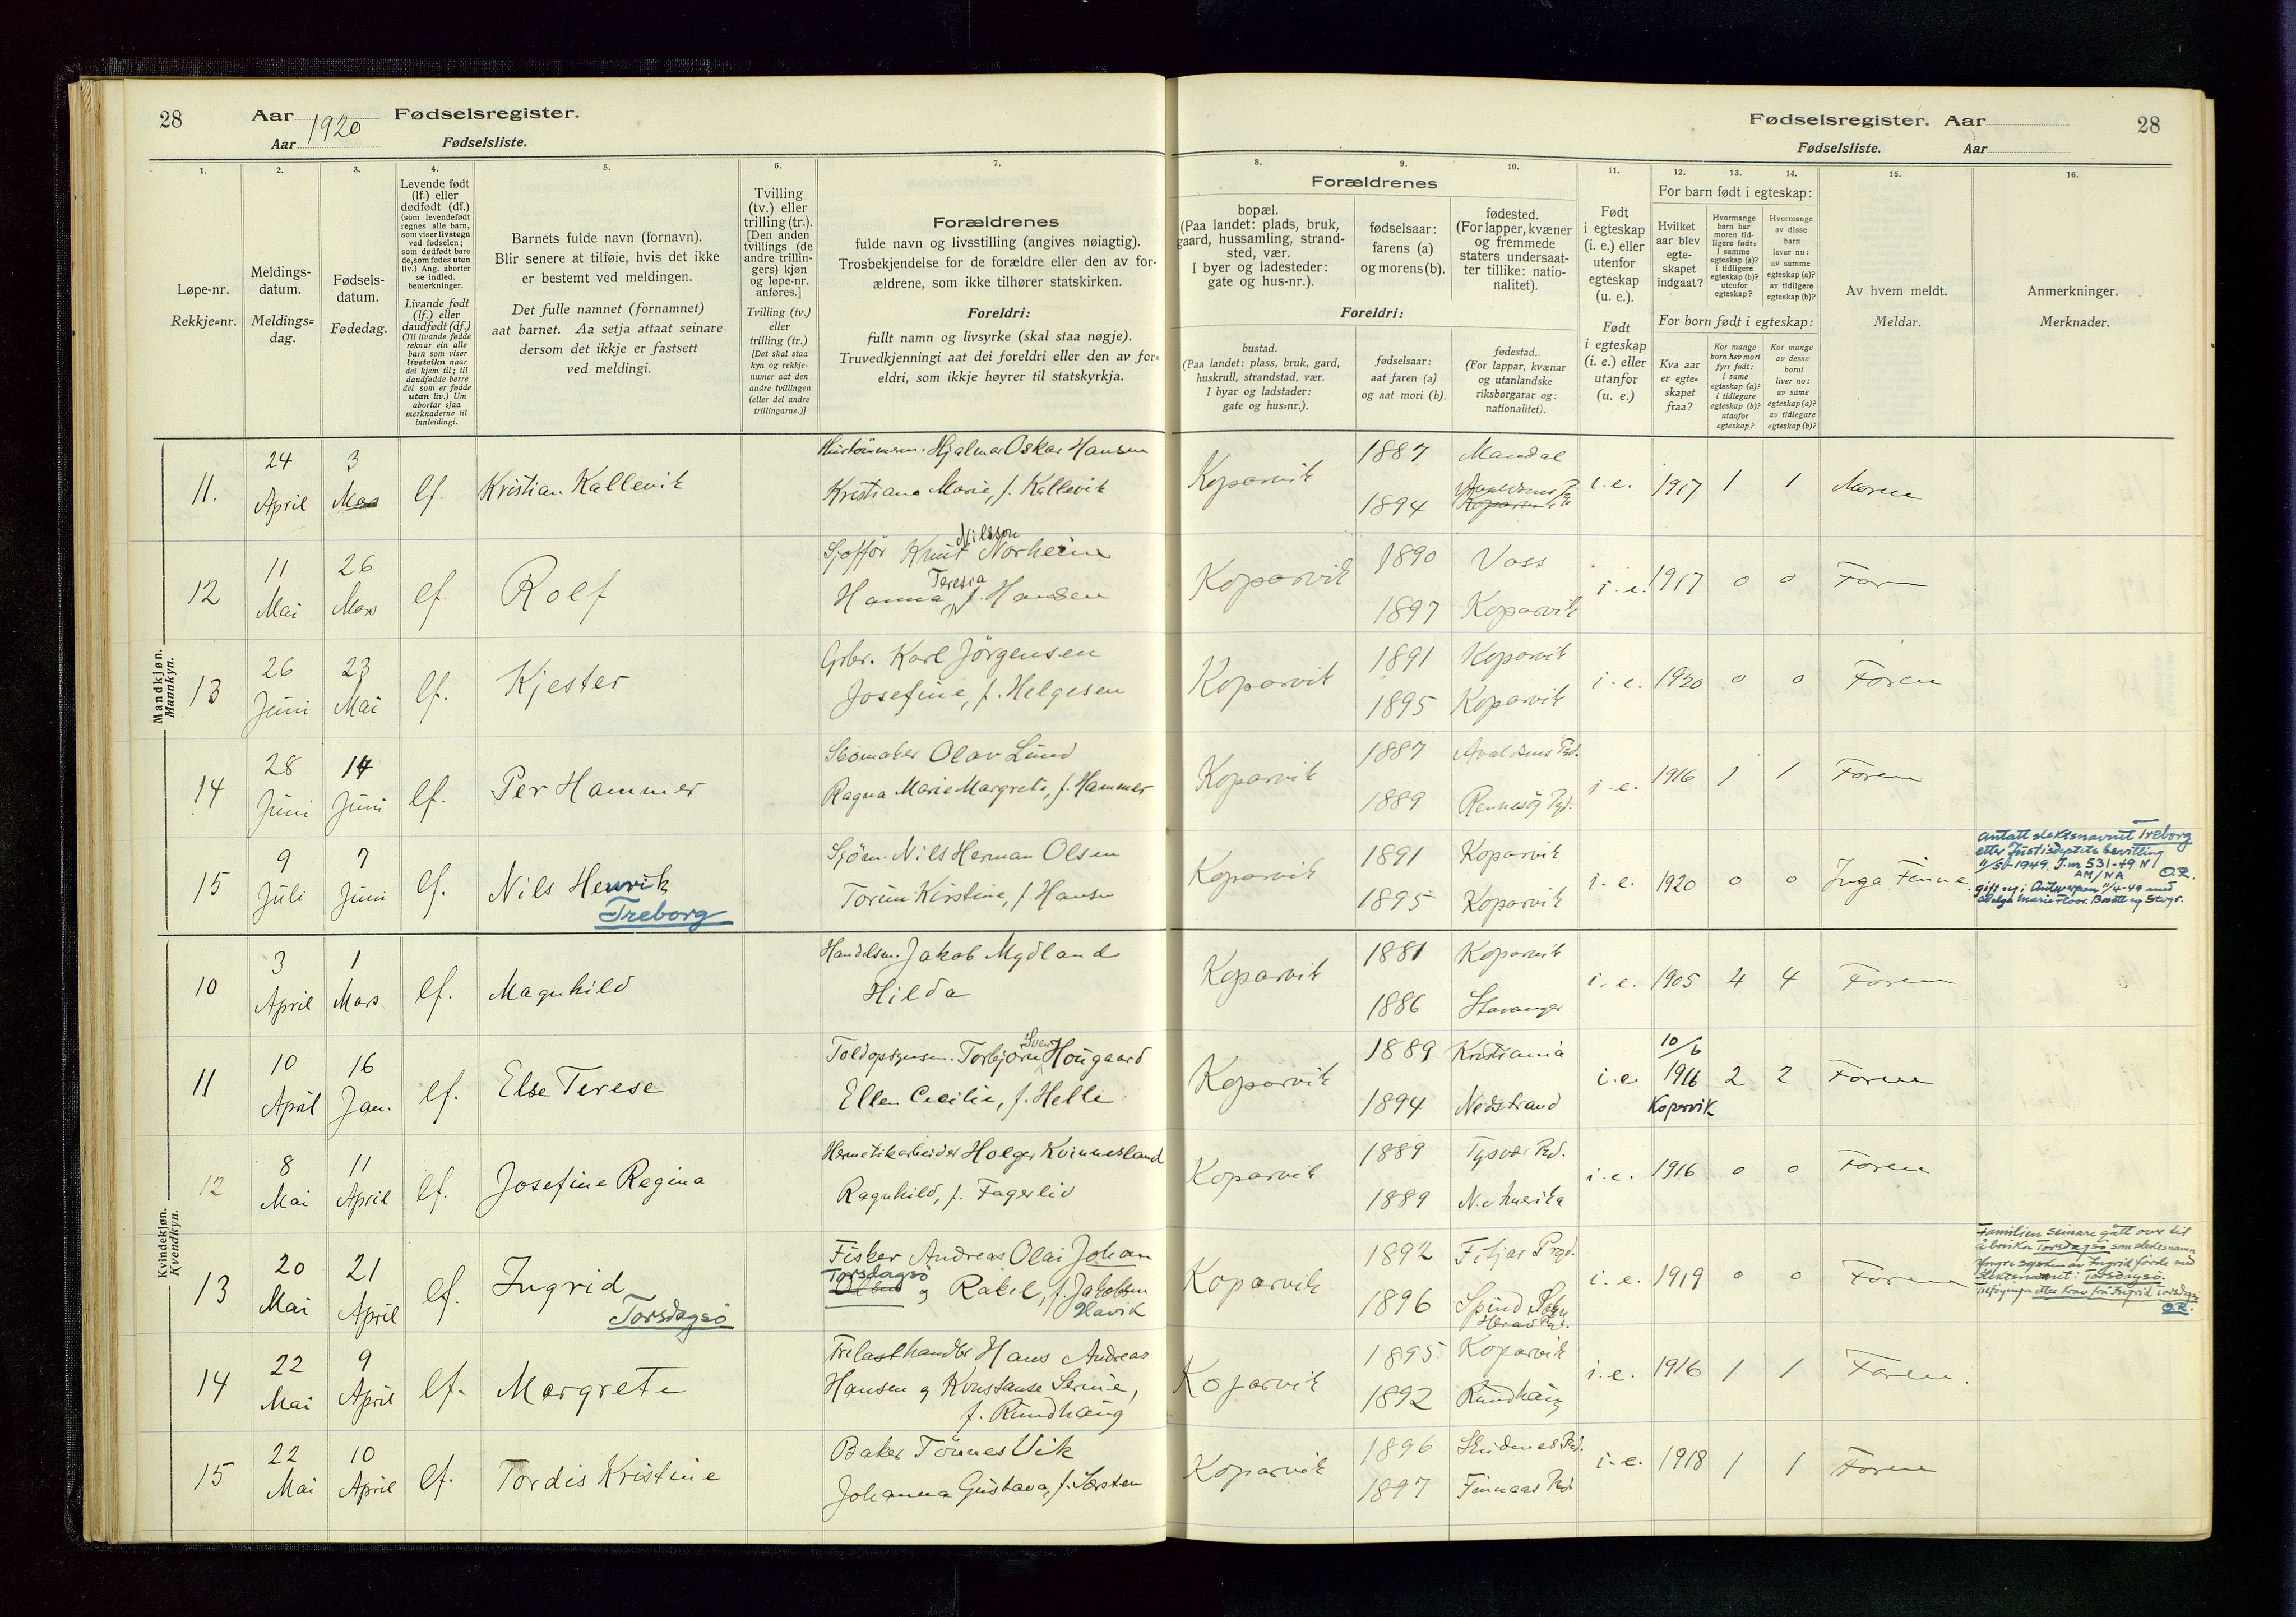 28 Aar 1920 Fødselsregister.
Aar Fødselsliste.
Fødselsregister. Aar 28
Fødselsliste. Aar
1.
Løpe-nr.
Rekkje=nr.
2.
Meldings-
datum.
Meldings=
dag.
3.
Fødsels-
datum.
Fødedag.
4.
Levende født
(lf.) eller
dødfødt (df.)
(som levendefødt
regnes alle barn,
som viser livstegn
ved fødselen;
som dødfødt bare
de, som fødes uten
liv.) Ang. aborter
se indled.
bemerkninger.
Livande født
(lf.) eller
daudfødt (df.)
(Til livande fødde
reknar ein alle
born som viser
livsteikn naar
dei kjem til; til
daudfødde berre
dei som er fødde
utan liv.) Um
abortar sjaa
merknaderne til
innleidingi.
5.
Barnets fulde navn (fornavn).
Blir senere at tilføie, hvis det ikke
er bestemt ved meldingen.
Det fulle namnet (fornamnet)
aat barnet. Aa setja attaat seinare
dersom det ikkje er fastsett
ved meldingi.
6.
Tvilling
(tv.) eller
trilling (tr.).
[Den anden
tvillings (de
andre trillin-
gers) kjøn
og løpe-nr.
anføres.]
Tvilling (tv.)
eller
trilling (tr.)
[Det skal staa
kyn og rekkje-
numer aat den
andre tvillingen
(eller dei andre
trillingarne.)]
7.
Forældrenes
fulde navn og livsstilling (angives nøiagtig).
Trosbekjendelse for de forældre eller den av for-
ældrene, som ikke tilhører statskirken.
Foreldri:
fullt namn og livsyrke (skal staa nøgje).
Truvedkjenningi aat dei foreldri eller den av for=
eldri, som ikkje høyrer til statskyrkja.
8.
Forældrenes
bopæl.
(Paa landet: plads, bruk,
gaard, hussamling, strand-
sted, vær.
I byer og ladesteder:
gate og hus-nr.).
Foreldri:
bustad.
(Paa landet: plass, bruk, gard,
huskrull, strandstad, vær.
I byar og ladstader:
gate og hus=nr.).
9.
fødselsaar:
farens (a)
og morens (b).
fødselsaar:
aat faren (a)
og aat mori (b).
10.
fødested.
(For lapper, kvæner
og fremmede
staters undersaat-
ter tillike: natio-
nalitet).
fødestad.
(For lappar, kvænar
og utanlandske
riksborgarar og:
nationalitet).
11.
Født
i egteskap
(i. e.) eller
utenfor
egteskap
(u. e.).
Født
i egteskap
(i. e.) eller
utanfor
(u. e.)
12. 13. 14.
For barn født i egteskap:
Hvilket
aar blev
egte-
skapet
indgaat?
Hvormange
barn har
moren tid-
ligere født:
i samme
egteskap (a)?
i tidligere
egteskap (b)?
utenfor
egteskap?
Hvormange
av disse
barn
lever nu:
av samme
egteskap (a)?
av tidligere
egteskap (b)?
For born født i egteskap:
Kva aar
er egte=
skapet
fraa?
Kor mange
born hev mori
fyrr født:
i same
egteskap (a)?
i tidlegare
egteskap (b)?
utanfor
egteskap?
Kor mange
av desse
borni
liver no:
av same
egteskap (a)?
av tidlegare
egteskap (b)?
15.
Av hvem meldt.
Meldar.
16.
Anmerkninger.
Merknader.
Mandkjøn.
Mannkyn.
11. 24 April 3 Mars lf. Kristian Kallevik
Hjalmar Oskar Hansen
Kristiane Marie, f. Kallevik
Kopervik 1887 Mandal
1894 Avaldsnes Pg.
i.e. 1917 1 1 Moren
12 11 Mai 26 Mars lf. Rolf
Sjofför Knut Nilsson Norheim
Hanna Teresia f. Hansen
Kopervik 1890 Voss
1897 Kopervik
i.e. 1917 0 0 Far
13 26 Juni 23 Mai lf. Kjester
Grbr. Karl Jörgensen
Josefine, f. Helgesen
Kopervik 1891 Kopervik
1895 Kopervik
i.e. 1920 0 0 Faren
14 28 Juni 14 Juni lf. Per Hammer
Skomaker Olav Lund
Ragna Marie Margrete, f. Hammer
Kopervik 1887 Avaldsnes Pgd.
1889 Rennesöy Pgd.
i.e. 1916 1 1 Faren
15 9 Juli 7 Juni lf. Nils Henrik
Treborg
Sjöm. Nils Herman Olsen
Torine Kirstine, f. Hansen
Kopervik 1891 Kopervik
1895 Kopervik
i.e. 1920 0 0 Inga Finne
Antatt slektsnavnet Treborg
etter Justisdeptets bevilling
11/5-1949. J.nr 531-49 N
AM/NA O.R.
gift i Antwerpen 11/4-49 med
Helga Marie
Kvindekjøn.
Kvendkyn.
10 3 April 1 Mars lf. Magnhild
Handelsm. Jakob Mydland
Hilda
Kopervik 1881 Kopervik
1886 Stavanger
i.e. 1905 4 4 Faren
11 10 April 16 Jan. lf. Else Terese
Toldopsynsm. Torbjorn Sven Hougaard
Ellen Cecilie, f. Helle
Kopervik 1889 Kristiania
1894 Nedstrand
i.e. 10/6 1916 Kopervik 2 2 Faren
12 8 Mai 11 April lf. Josefine Regina
Hermetikarbeider Holger Kvinnesland
Ragnhild, f. Fagerlid
Kopervik 1889 Tysvær Pgd.
1889 N. Amerika
i.e. 1916 0 0 Faren
13 20 Mai 21 April lf. Ingrid
Torsdagsö
Fisker Andreas Olai Johan
Torsdagsö
Olsen og Rakel, f. Jakobsen
Havik
Kopervik 1892 Fitjar Prgd.
1896 Spind Sokn
Herad Pgd.
i.e. 1919 0 0 Faren
Familien seinare gått over til
å bruka Torsdagsö som slektsnamn
Yngre systen av Ingrid förde med
slektsnamnet: Torsdagsö.
Tilföyinga etter krav frå Ingrid Torsdagsö
O.R.
14 22 Mai 9 April lf. Margrete
Trelasthandler Hans Andreas
Hansen og Konstanse Serine,
f. Rundhaug
Kopervik 1895 Kopervik
1892 Rundhaug
i.e. 1916 1 1 Faren.
15 22 Mai 10 April lf. Tordis Kristine
Baker Tönnes Vik
Johanna Gustava, f. Særsten
Kopervik 1896 Skudenes Pgd.
1897 Finnaas Pgd.
i.e. 1918 1 1 Faren